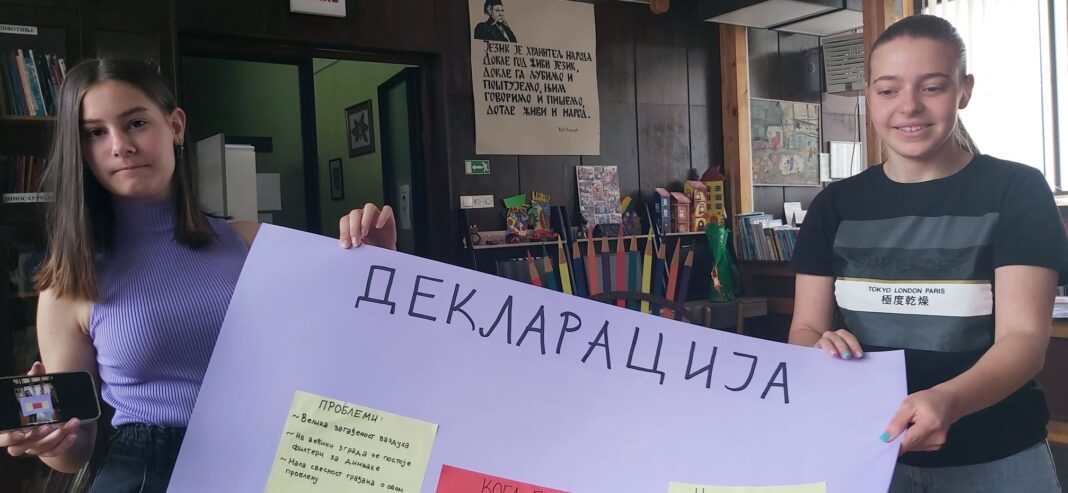 ЈЕЗИК ЈЕ ХРАНИТЕЉ НАРОДА
ДОКЛЕ ГОД ЖИВИ ЈЕЗИК,
ДОКЛЕ ГА ЉУБИМО И
ПОШТУЈЕМО, ЊИМ
ГОВОРИМО И ПИШЕМО,
ДОТЛЕ ЖИВИ И НАРОД.
ДЕКЛАРАЦИЈА
ПРОБЛЕМИ:
~ Велика загађеност ваздуха
~ На већини зграда не постоје
филтери за димњаке
~ Мала свесност грађана о овом
проблему
TOKYO LONDON PARIS
極度乾燥